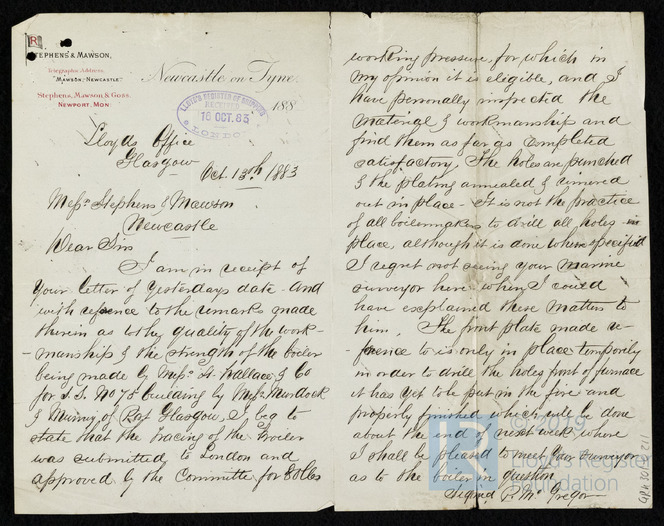 R
STEPHENS & MAWSON.
Telegraphic Address,
"MAWSON, NEWCASTLE"
Stephens, Mawson & Goss.
NEWPORT, MON.
Newcastle on Tyne,
188
LLOYD'S REGISTER OF SHIPPING
RECEIVED
16 OCT. 83
LONDON
Lloyds Office
Glasgow Oct. 13th 1883
Messrs Stephens & Mawson
Newcastle
Dear Sirs
I am in receipt of
your letter of yesterdays date and
with refence to the remarks made
therein as to the quality of the work-
-manship & the strength of the boiler
being made by Messrs Wallace & Co
for S.S. No 78 building by Messrs Murdock
& Murray of Port Glasgow, I beg to
state that the tracing of the boiler
was submitted to London and
approved by the Committe for 80 lbs
working pressure, for which in
my opinion it is eligible, and I
have personally inspected the
material & workmanship and
find them as far as completed
satisfactory. The holes are punched
& the plating annealed & rimered
out in place - It is not the practice
of all boilermakers to drill all holes in
place, although it is done where specified
I regret not seeing your marine
surveyor here when I could
have explained these matters to
him. The front plate made re-
-ference to is only in place temporily
in order to drill the holes front of furnace
it has yet to be put in the fire and
properly finished which will be done
about the end of next week where
I shall be pleased to meet your surveyor
as to the boiler in question
Signed R. McGregor
© 2019
Lloyd's Register
Foundation